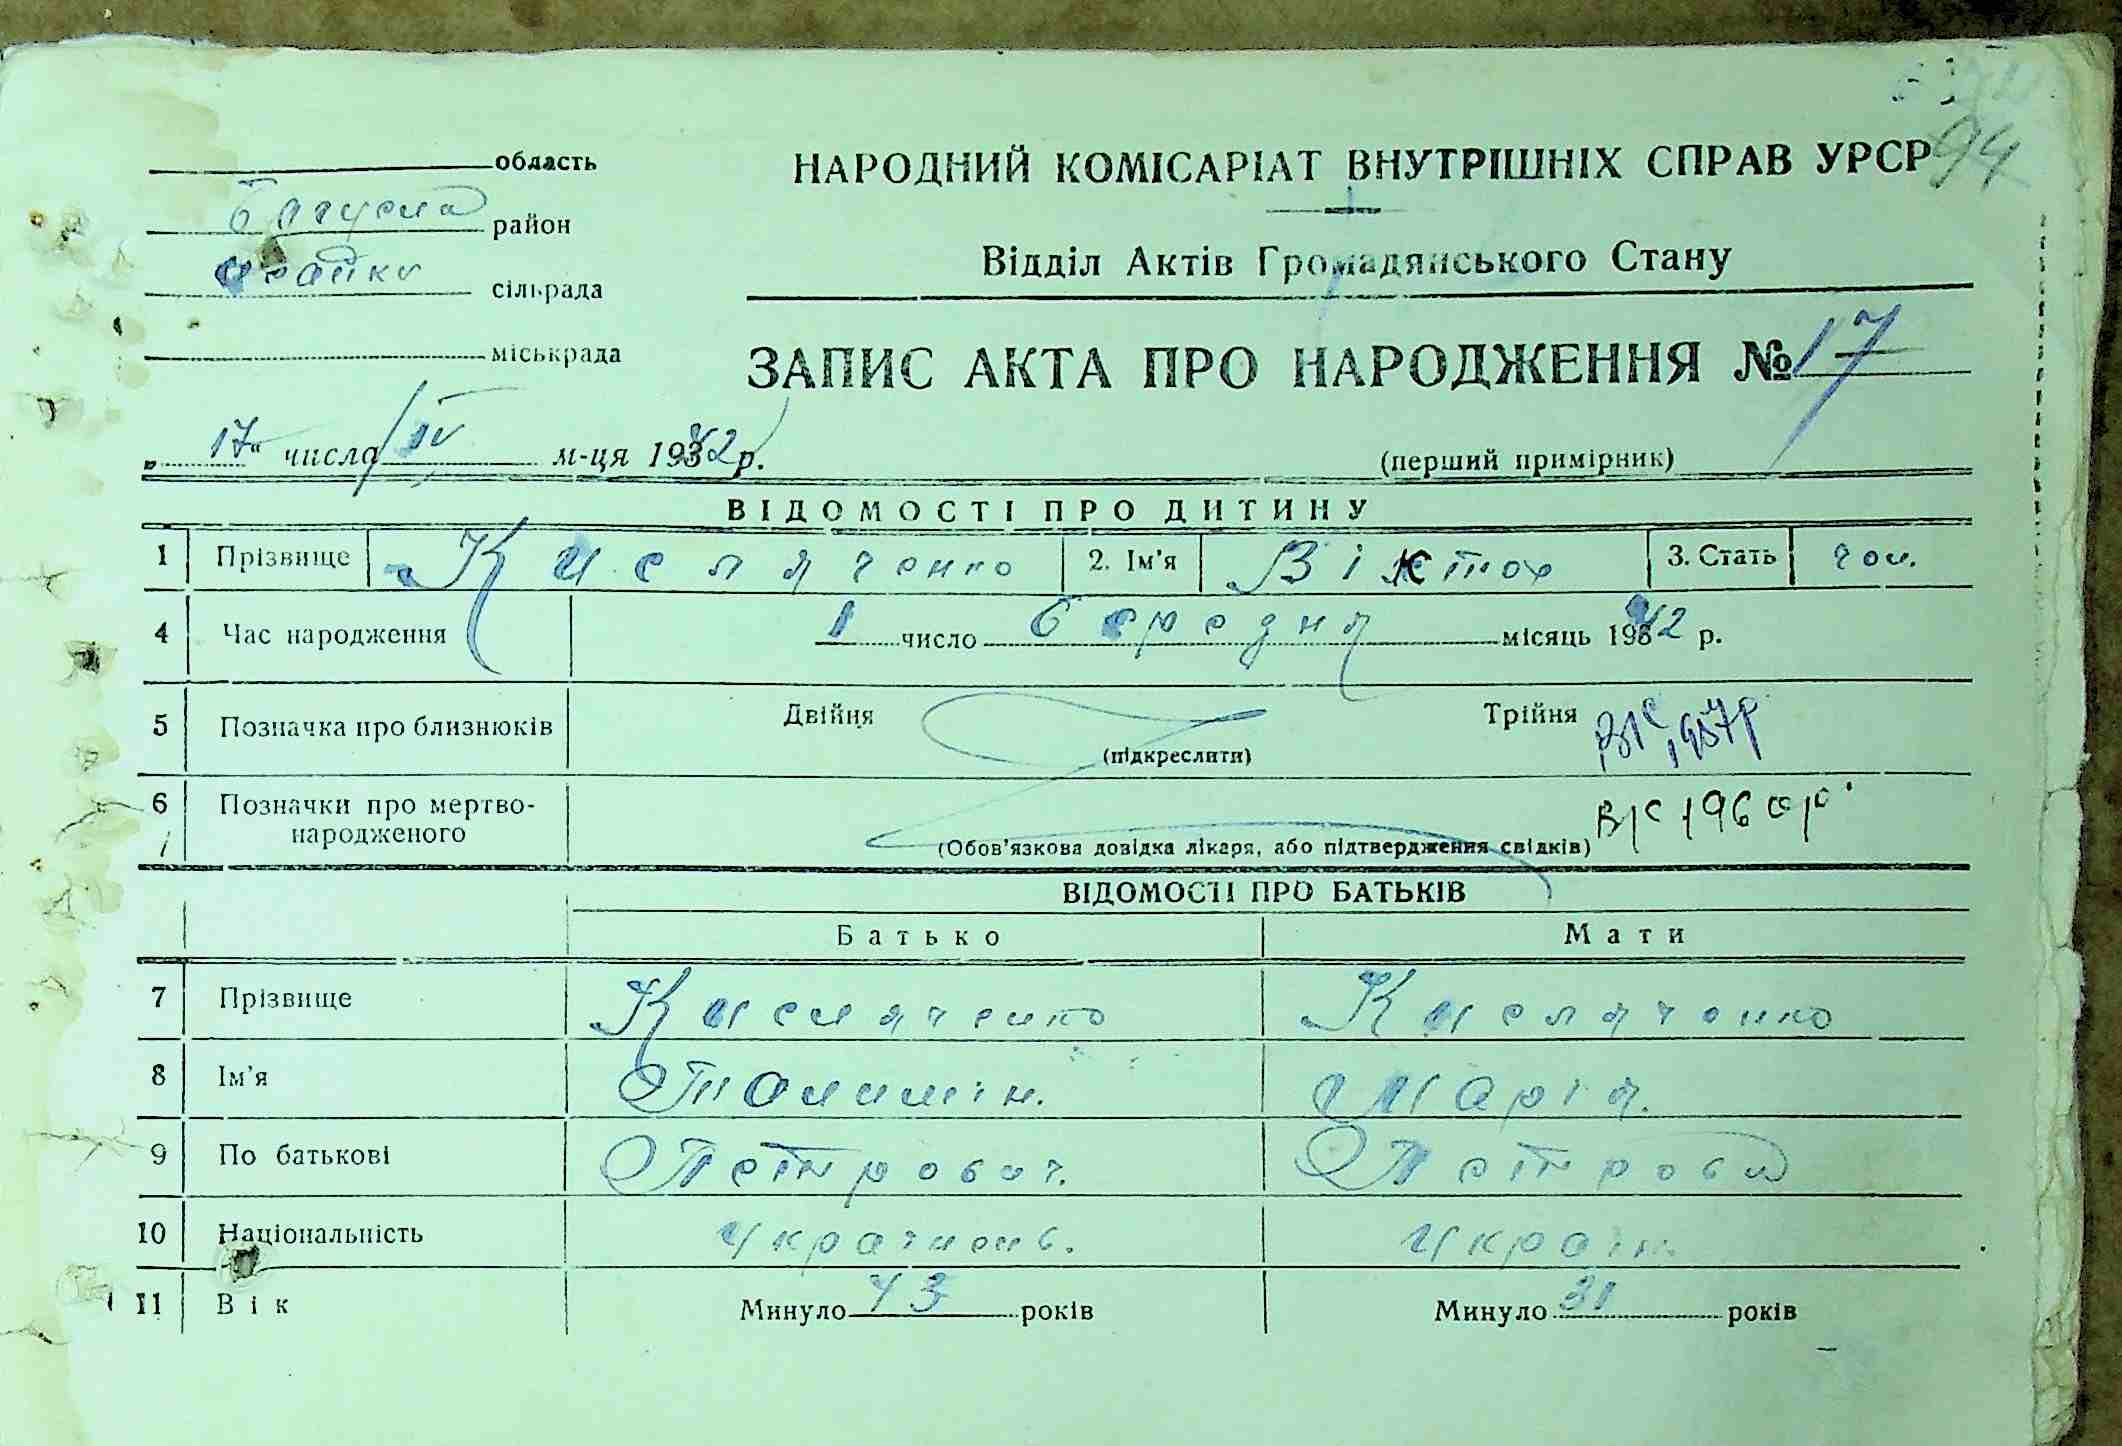 94
область
НАРОДНИЙ КОМІСАРІАТ ВНУТРІШНІХ СПРАВ УРСР
район
Відділ Актів Громадянського Стану
сільрада
міськрада
ЗАПИС АКТА ПРО НАРОДЖЕННЯ № 17
„ 17 “ числа IV м-ця 1942 р.
(перший примірник)
ВІДОМОСТІ ПРО ДИТИНУ
1 Прізвище Кисляченко 2. Ім’я Віктор 3. Стать чол.
4 Час народження 1 число березня місяць 1942 р.
5 Позначка про близнюків Двійня (підкреслити) Трійня
1957р
6 Позначки про мертво-
народженого
(Обов’язкова довідка лікаря, або підтвердження свідків)
ВІДОМОСТІ ПРО БАТЬКІВ
Батько Мати
7 Прізвище Кисляченко Кисляченко
8 Ім’я Марія.
9 По батькові Петрович. Петровна
10 Національність українець. україн.
11 Вік Минуло 43 років Минуло 31 років